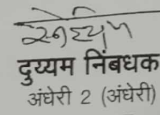 दुय्यम निंबधक
अंधेरी 2 (अंधेरी)